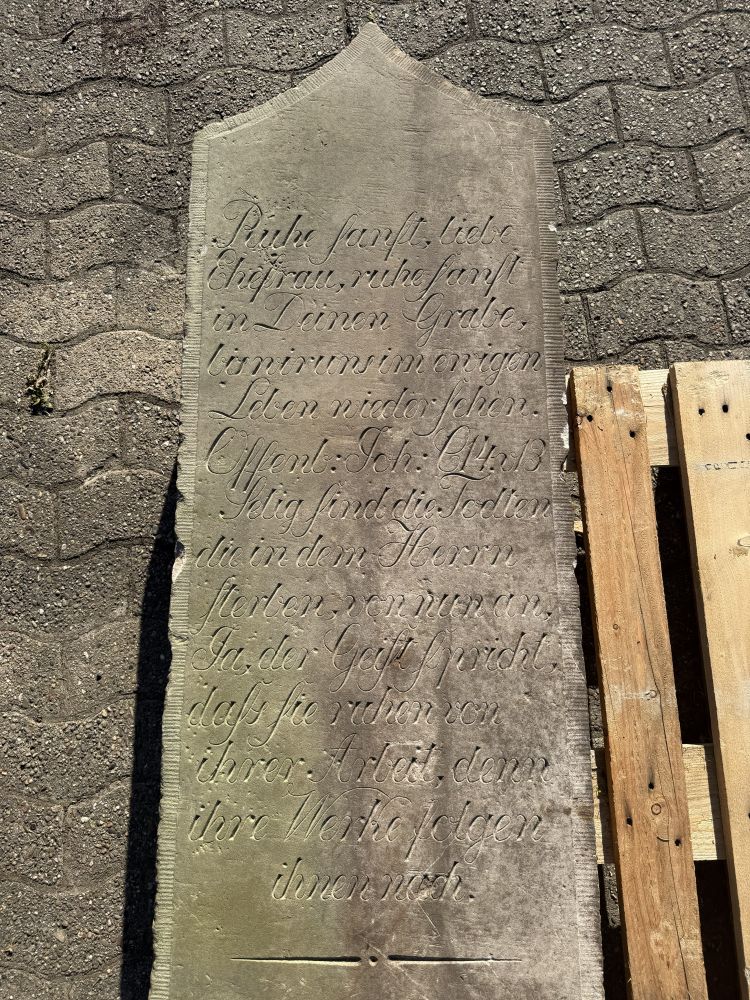 Ruhe sanft, liebe
Ehefrau, ruhe sanft
in Deinen Grabe,
bis wir uns im ewigen
Leben wieder sehen.
Offenb: Joh: C.14.v.13
Selig sind die Todten
die in dem Herrn
sterben, von nun an,
Ja, der Geist spricht,
daß sie ruhen von
ihrer Arbeit, denn
ihre Werke folgen
ihnen nach.